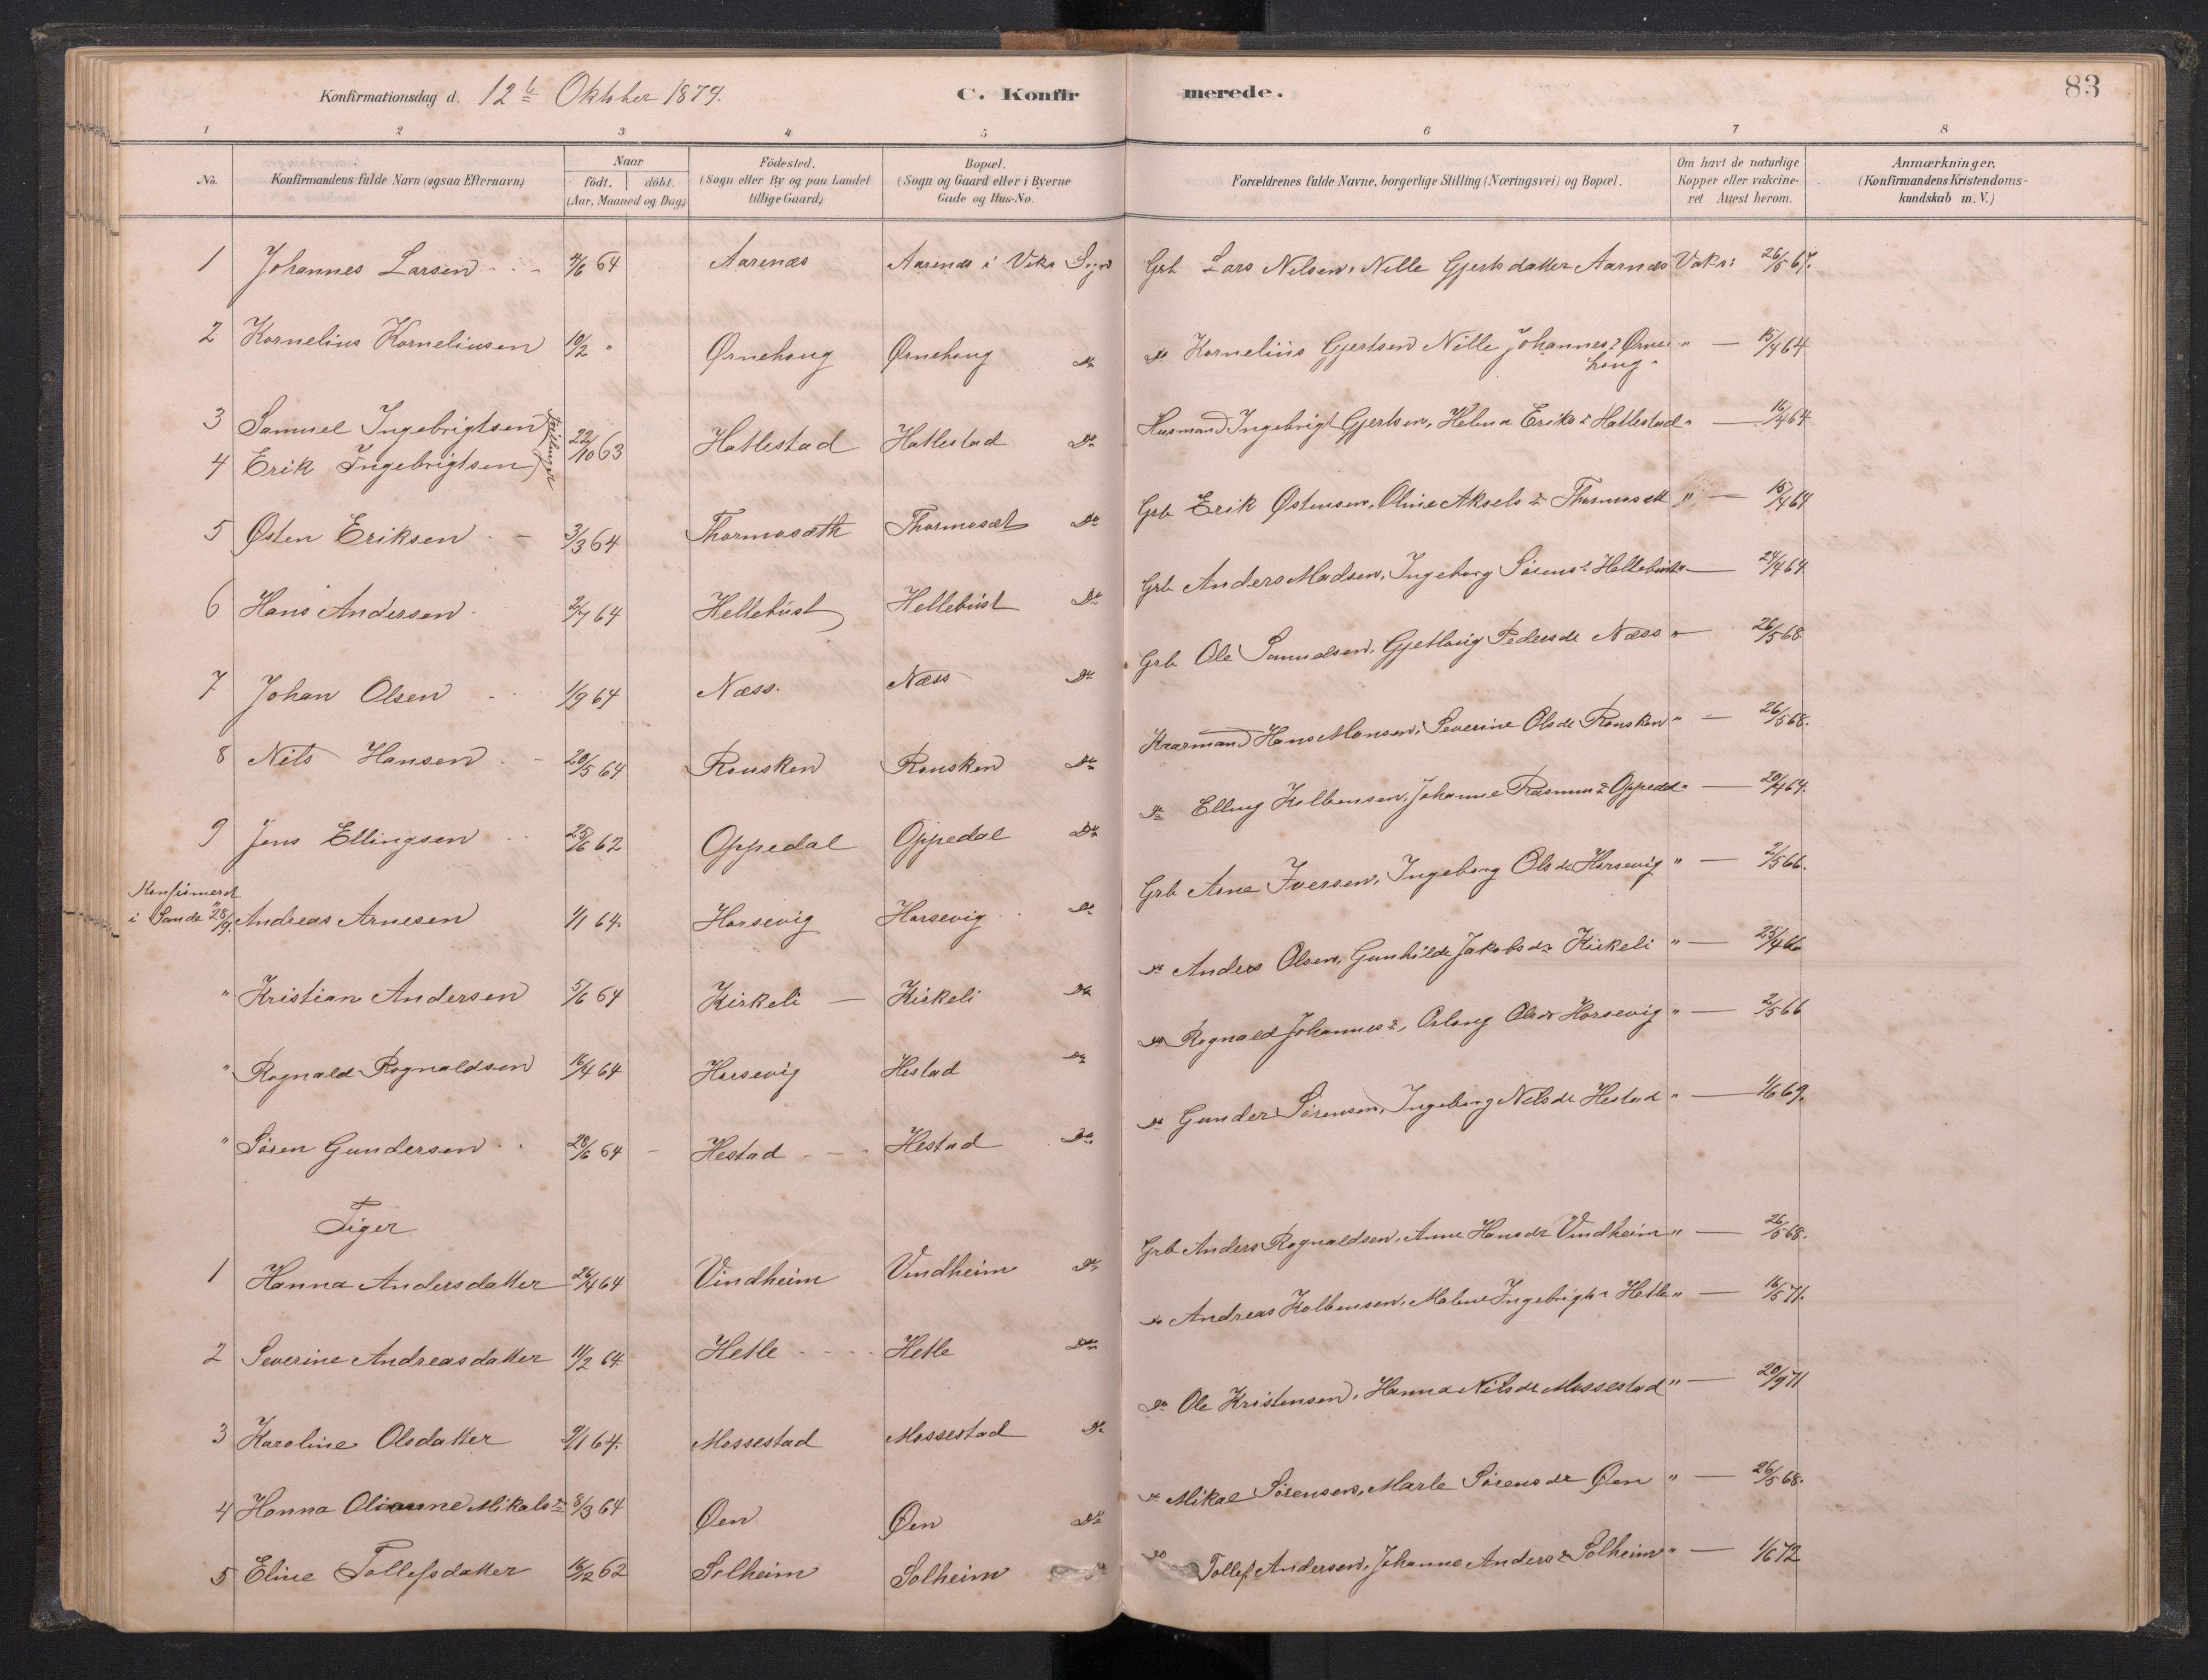 83
Konfirmationsdag d. 12te Oktober 1879. C. Konfirmerede.
1 2 3 4 5 6 7 8
No. Konfirmandens fulde Navn (ogsaa Efternavn) Naar födt. döbt. (Aar, Maaned og Dag) Födested. (Sogn eller By og paa Landet tillige Gaard) Bopæl. (Sogn og Gaard eller i Byerne Gade og Hus-No. Forældrenes fulde Navne, borgerlige Stilling (Næringsvei) og Bopæl. Om havt de naturlige Kopper eller vakcineret Attest herom. Anmærkninger, (Konfirmandens Kristendomskundskab m. V.)
1 Johannes Larsen 64 Aarenæs Aarenæs i Viks Sogn Grb Lars Nilsen, Nille Gjertsdatter Aarnæs Vaks: 26/5 67.
2 Kornelius Korneliusen 10/2 " Ørnehoug Ørnehoug Do Do Kornelius Gjertsen Nille Johannesdr Ørnehoug " — 15/4 64
3 Samuel Ingebrigtsen Tvillinger 22/10 63 Hatlestad Hatlestad Do Husmand Ingebrigt Gjertsen, Helena Eriksdr Hatlestad " — 64
4 Erik Ingebrigtsen
5 Østen Eriksen 3/3 64 Thormosæth Thormosæt Do Grb Erik Østensen, Oline Akselsdr Thormosæt " — 15/4 64
6 Hans Andersen 2/7 64 Hellebust Hellebust Do Grb Anders Madsen, Ingeborg Sørensdr Hellebust " — 24/4 64
7 Johan Olsen 1/9 64 Næss. Næss Do Grb Ole Samuelsen, Gjetloug Pedersdr Næss " — 26/5 68
8 Nils Hansen 20/5 64 Rousken Rousken Do Kaarmand Hans Monsen, Severine Olsdr Rousken " — 26/5 68.
9 Jens Ellingsen 25/6 62 Oppedal Oppedal Do Do Elling Kolbensen, Johanne Rasmusdr Oppedal " — 20/4 64.
Konfirmeret i Sande 28/9. Andreas Arnesen 1/1 64. Horsevig Horsevig Do Grb Arne Iversen, Ingeborg Olsdr Horsevig " — 2/5 66.
" Kristian Andersen 5/6 64 Kirkeli — Kirkeli Do Do Anders Olsen, Gunhilde Jakobsdr Kirkeli " — 25/4 66
" Rognald Rognaldsen 16/4 64 Horsevig Hestad Do Do Rognald Johannesdr, Oslaug Olsdr Horsevig " — 2/5 66
" Sören Gundersen 20/6 64 Hestad Hestad Do Do Gunder Sörensen, Ingeborg Nilsdr Hestad " — 1/6 69.
Piger
1 Hanna Andersdatter 26/4 64 Vindheim Vindheim Do Grb Anders Rognaldsen, Anne Hansdr Vindheim " — 26/5 68.
2 Severine Andreasdatter 11/2 64. Hetle Hetle Do Do Andreas Kolbensen, Malene Ingebrigtsdr Hetle " — 16/5 71.
3 Karoline Olsdatter 9/1 64. Mossestad Mossestad Do Do Ole Kristensen, Hanna Nilsdr Mossestad " — 20/9 71
4 Hanna Olianne Mikalsdr 8/3 64 Øen Øen Do Do Mikal Sörensen, Marte Sörensdr Øen " — 26/5 68.
5 Eline Tollefsdatter 16/12 62 Solheim Solheim Do Do Tollef Andersen, Johanne Andersdr Solheim " — 1/6 72